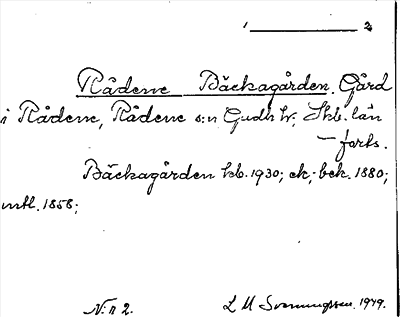 1 ________ 2
Rådene Bäckagården. Gård
i Rådene, Rådene s:n Gudh. hr. Skb. län
— forts.
Bäckagården kb. 1930; ek; bek. 1880;
mtl. 1858;
N:r 2. L M Svenungsson 1949.